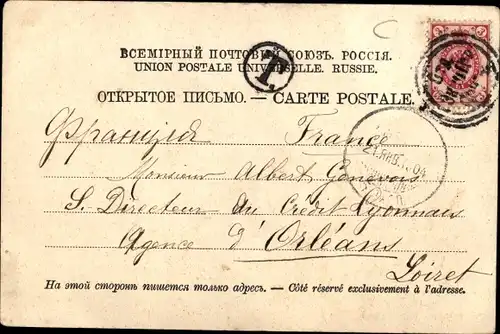 ВСЕМІРНЫЙ ПОЧТОВЫЙ СОЮЗЪ. РОССІЯ.
UNION POSTALE UNIVERSELLE. RUSSIE.
T
ОТКРЫТОЕ ПИСЬМО. — CARTE POSTALE.
Франція France
Monsieur Albert Genevois
S. Directeur du Crédit Lyonnais
Agence d'Orléans
Loiret
На этой сторонѣ пишется только адресъ. — Côté réservé exclusivement à l'adresse.